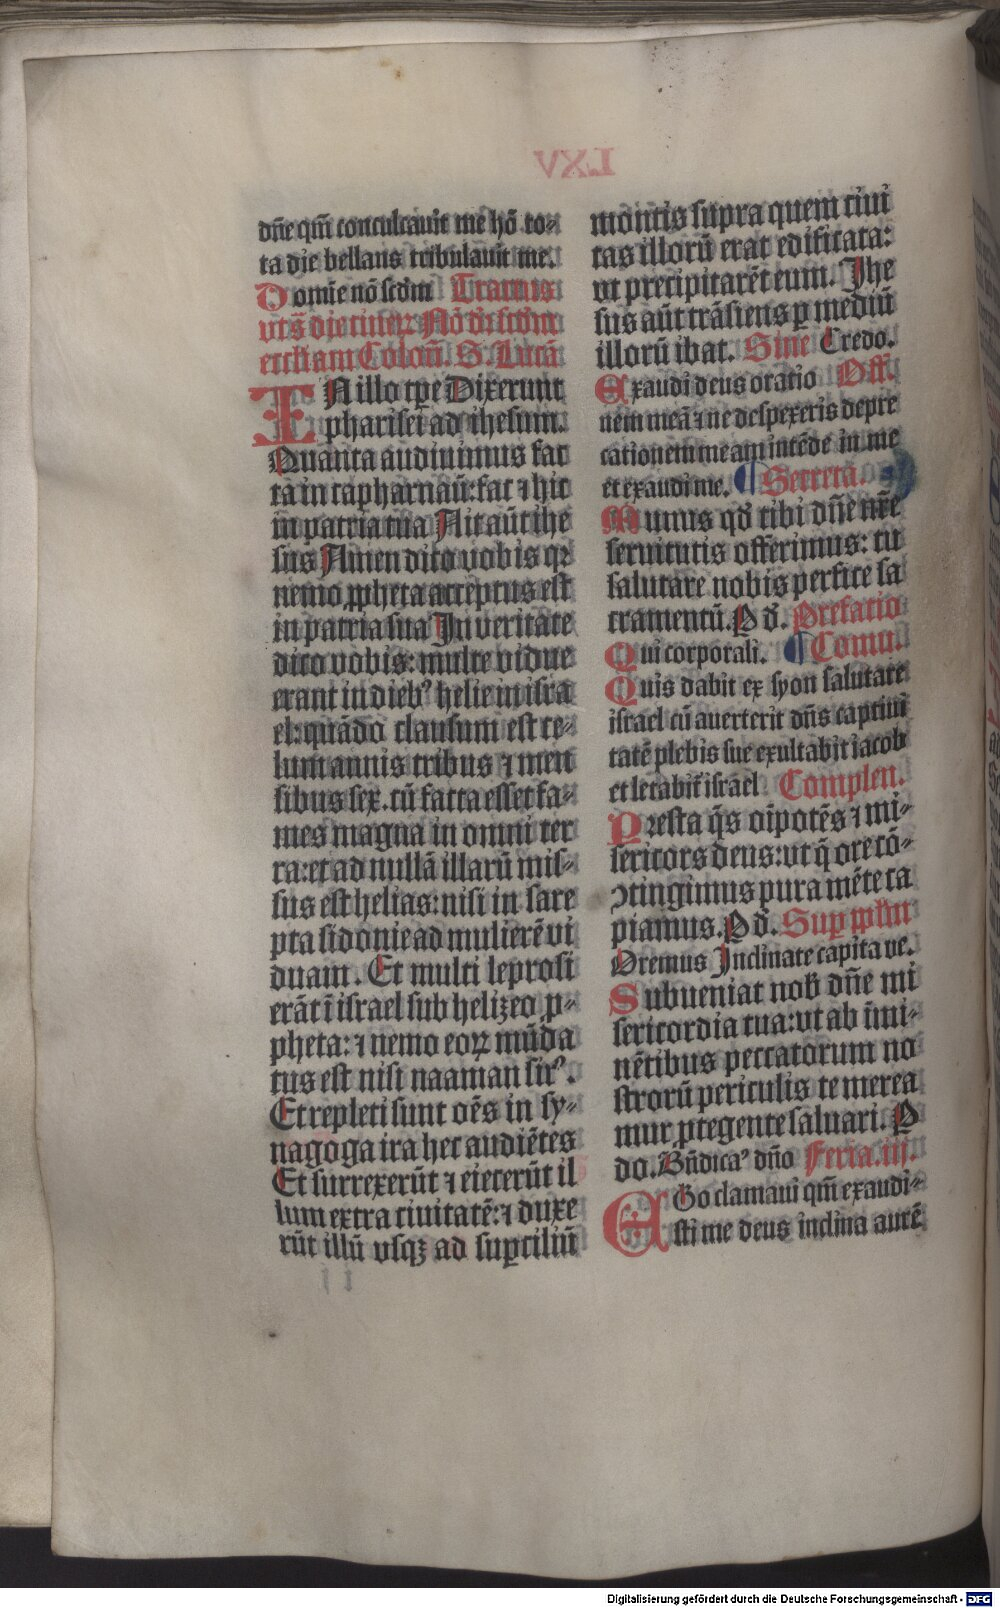 dñe qm̄ conculcauit me hō to⸗
ta die bellans tribulauit me.
Domine nō scd̄m Tractus
vt s̄ die ciner̄ꝝ Nō dr̄ scd̄m
eccl̄iam Coloñ. S. Lucā
IN illo tp̄e Dixerunt
pharisei ad ihesum.
Quanta audiuimus fac
ta in capharnaū: fac ⁊ hic
in patria tua Ait aūt ihe
sus Amen dico vobis qꝛ
nemo ꝓpheta acceptus est
in patria sua In veritate
dico vobis: multe vidue
erant in diebꝰ helie in isra
el: quādo clausum est ce⸗
lum annis tribus ⁊ men
sibus sex. cū facta esset fa⸗
mes magna in omni ter
ra: et ad nullā illarū mis⸗
sus est helias: nisi in sare
pta sidonie ad mulierē vi
duam. Et multi leprosi
erāt ī israel sub helizeo ꝓ⸗
pheta: ⁊ nemo eoꝝ mūda
tus est nisi naaman sirꝰ.
Et repleti sunt oēs in sy⸗
nagoga ira hec audiētes
Et surrexerūt ⁊ eiecerūt il
lum extra ciuitatē: ⁊ duxe
rūt illū vsqꝫ ad suꝑciliū
montis supra quem ciui
tas illorū erat edificata:
vt precipitarēt eum. Ihe
sus aūt trāsiens ꝑ mediū
illorū ibat. Sine Credo.
Exaudi deus oratio Off.
nem meā ⁊ ne despexeris depre
cationem meam intēde in me
et exaudi me. Secreta.
Munus qd̄ tibi dñe nr̄e
seruitutis offerimus: tu
salutare nobis perfice sa
cramentū. P d̄. Prefatio
Qui corporali. Comu.
Quis dabit ex syon salutare
israel cū auerterit dñs captiui
tatē plebis sue exultabit iacob
et letabit̄ israel Complen.
Presta q̄s oīpotēs ⁊ mi⸗
sericors deus: vt q̄ ore cō⸗
ↄtingimus pura mēte ca
piamus. P d̄. Suꝑ ppl̄m
Oremus Inclinate capita ve.
Subueniat nob̄ dñe mi
sericordia tua: vt ab īmi⸗
nētibus peccatorum no
strorū periculis te merea
mur ꝓtegente saluari. P
do. Bn̄dicaꝰ dño Feria.iij.
Ego clamaui qm̄ exaudi⸗
sti me deus inclina aurē
Digitalisierung gefördert durch die Deutsche Forschungsgemeinschaft - DFG